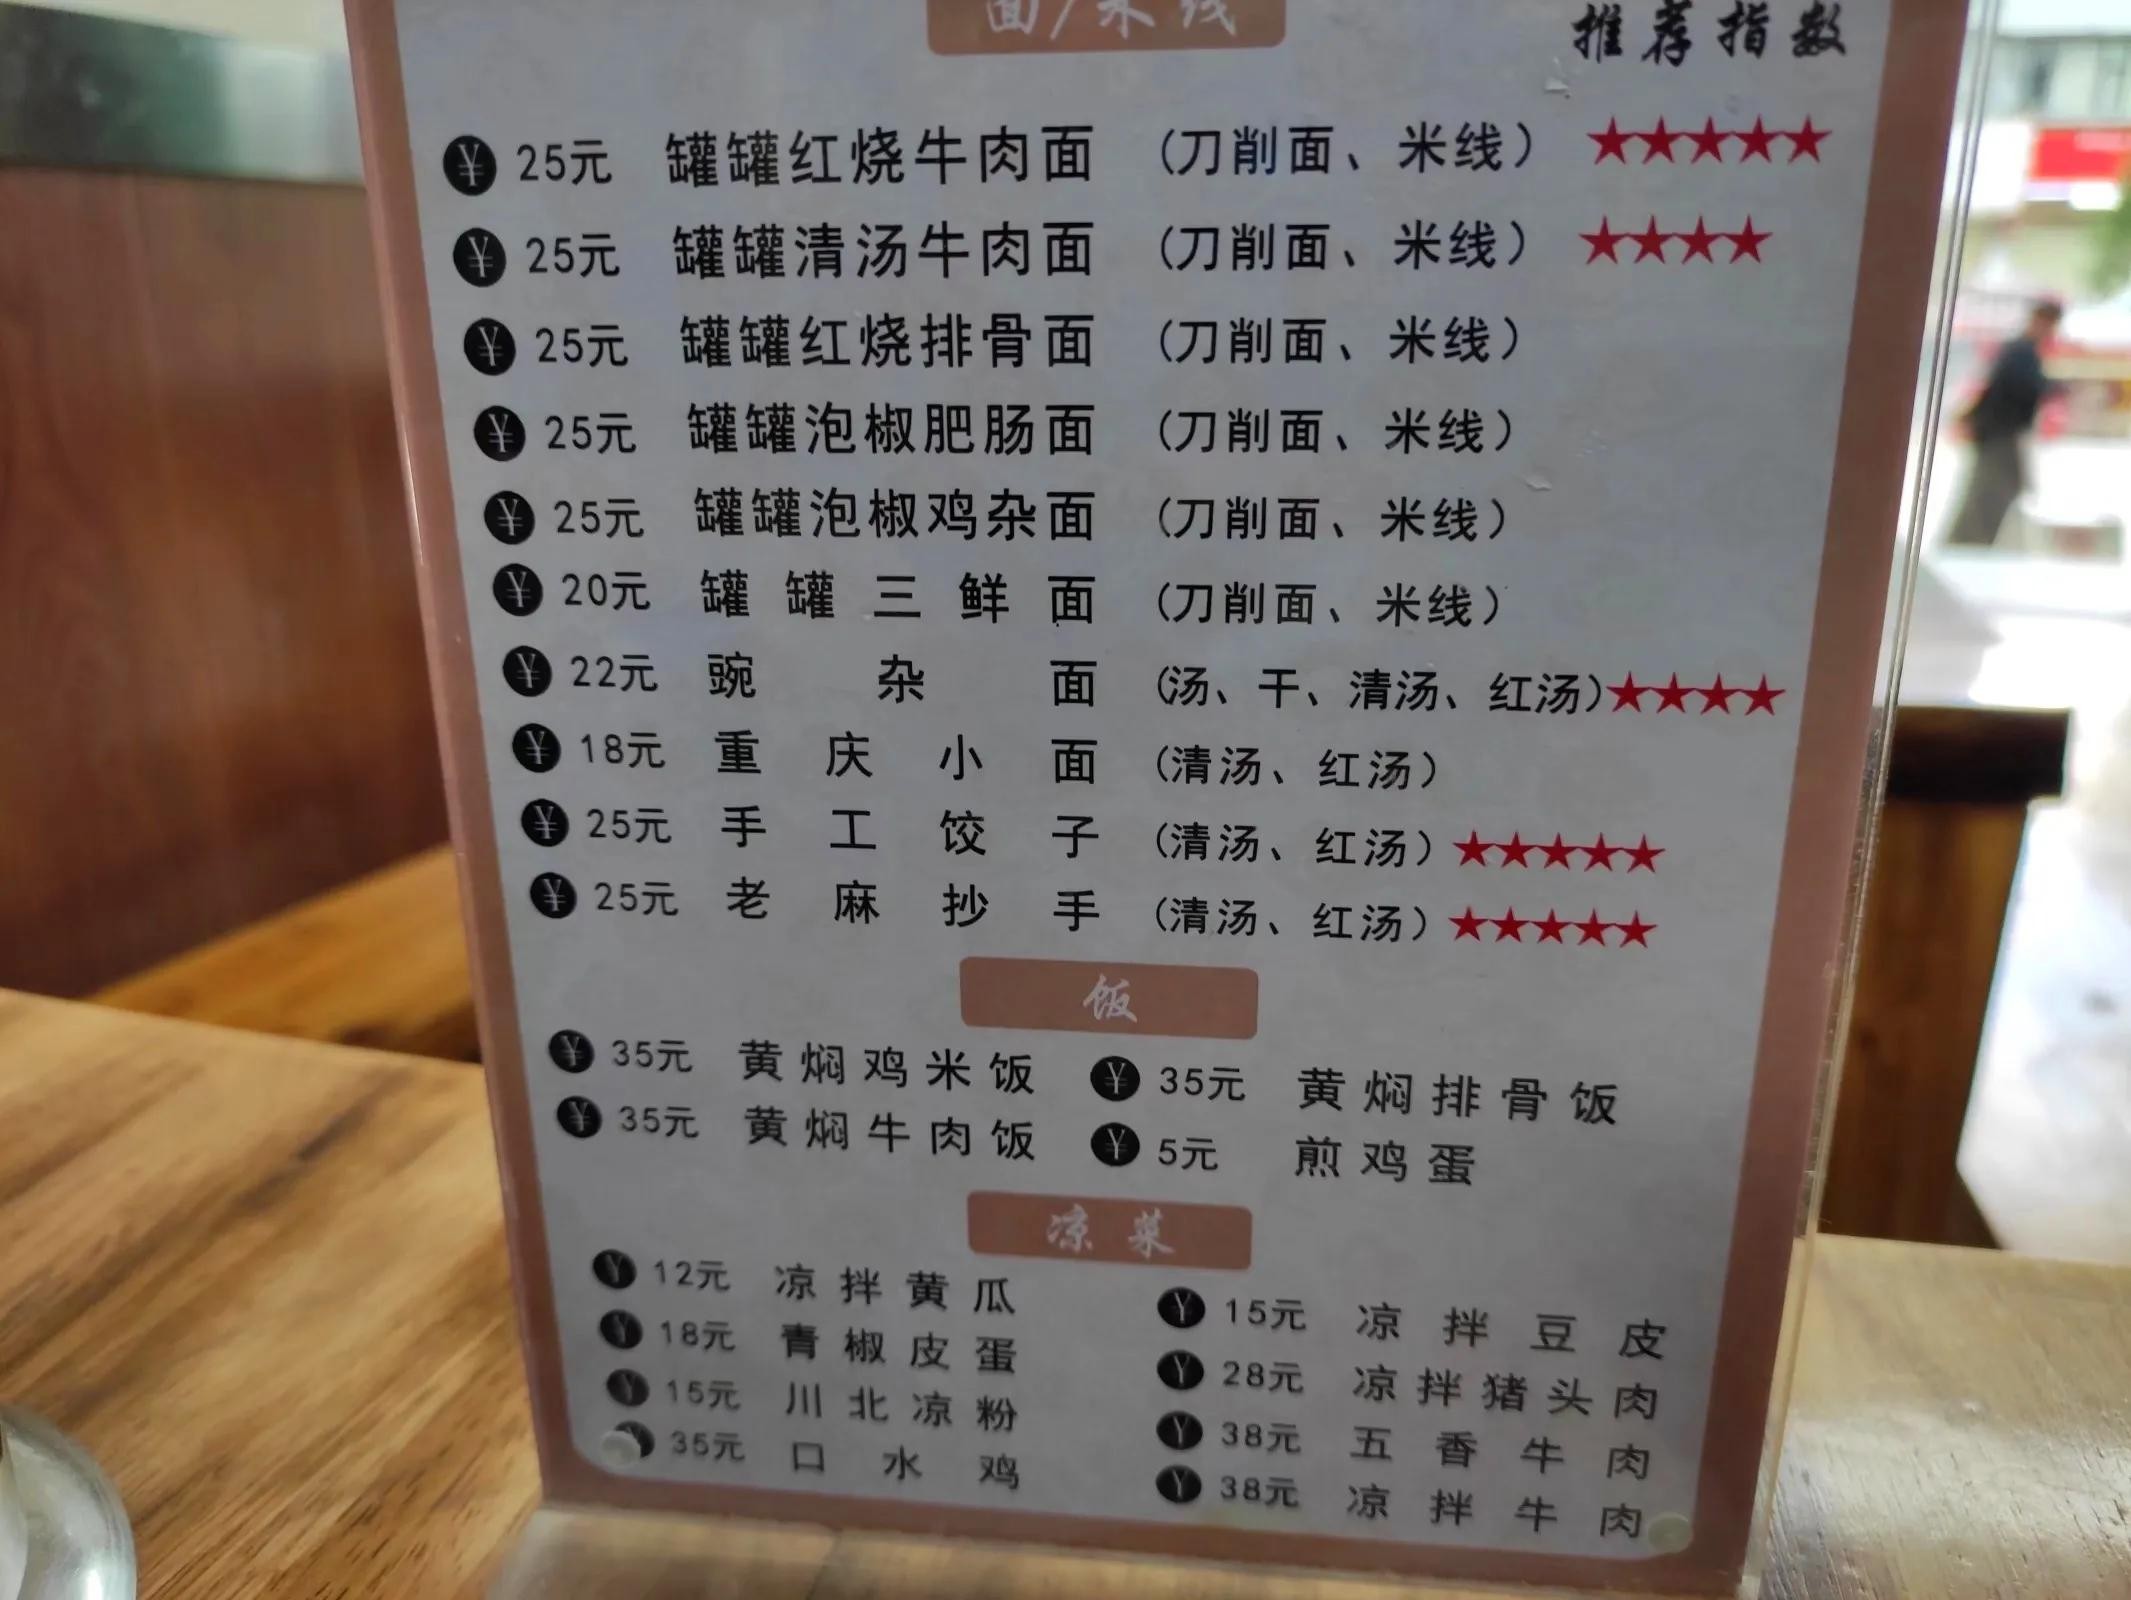 面/米线
推荐指数
¥ 25元 罐罐红烧牛肉面 (刀削面、米线) ★★★★★
¥ 25元 罐罐清汤牛肉面 (刀削面、米线) ★★★★
¥ 25元 罐罐红烧排骨面 (刀削面、米线)
¥ 25元 罐罐泡椒肥肠面 (刀削面、米线)
¥ 25元 罐罐泡椒鸡杂面 (刀削面、米线)
¥ 20元 罐罐三鲜面 (刀削面、米线)
¥ 22元 豌杂面 (汤、干、清汤、红汤) ★★★★
¥ 18元 重庆小面 (清汤、红汤)
¥ 25元 手工饺子 (清汤、红汤) ★★★★★
¥ 25元 老麻抄手 (清汤、红汤) ★★★★★
饭
¥ 35元 黄焖鸡米饭 ¥ 35元 黄焖排骨饭
¥ 35元 黄焖牛肉饭 ¥ 5元 煎鸡蛋
凉菜
¥ 12元 凉拌黄瓜 ¥ 15元 凉拌豆皮
¥ 18元 青椒皮蛋 ¥ 28元 凉拌猪头肉
¥ 15元 川北凉粉 ¥ 38元 五香牛肉
¥ 35元 口水鸡 ¥ 38元 凉拌牛肉